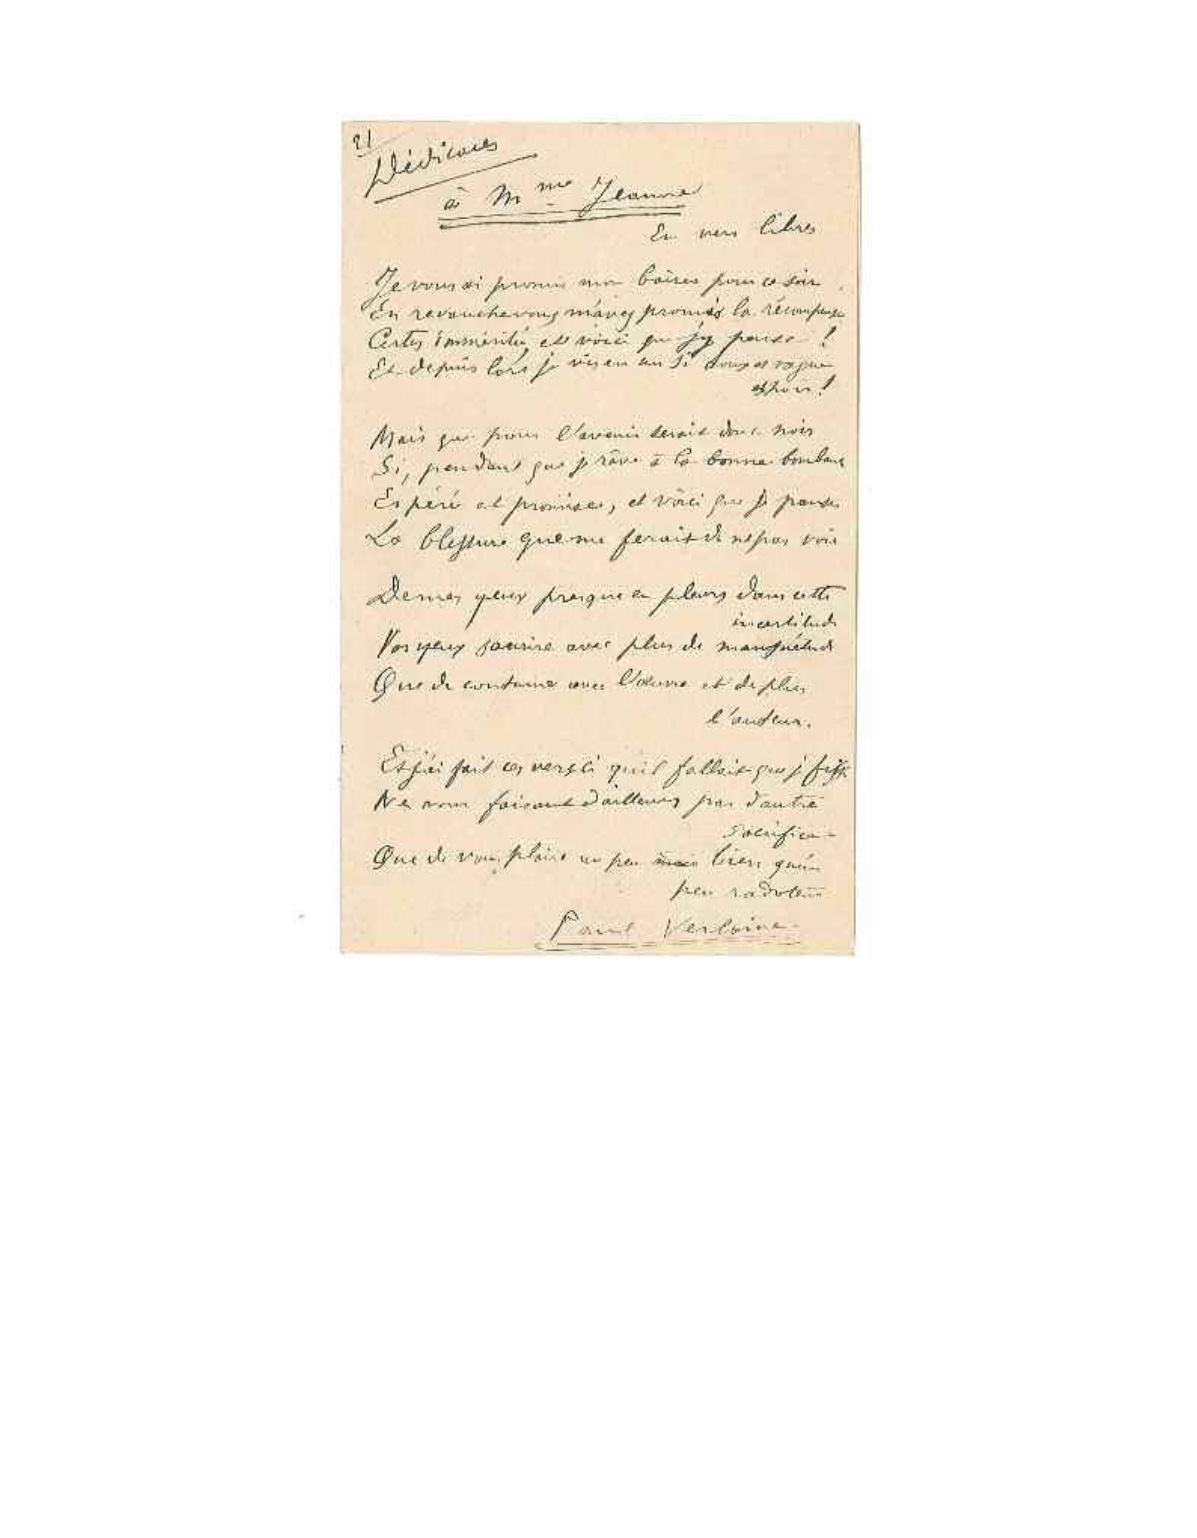 21
Dédicaces
à Mme Jeanne
En vers libres
Je vous ai promis mon baiser pour ce soir
En revanche vous m'avez promis la récompense
Certes imméritée et voici que j'y pense !
Et depuis lors je vis en un si doux et vague
espoir !
Mais que pour l'avenir serait donc noir
Si, pendant que je rêve à la bonne bombance
Espérée et promise, et voici que je pense
La blessure que me ferait de ne pas voir
De mes yeux presque en pleurs dans cette
incertitude
Vos yeux sourire avec plus de mansuétude
Que de coutume avec l'œuvre et de plus
l'auteur.
Et j'ai fait ces vers-ci qu'il fallait que je fisse
Ne vous faisant d'ailleurs pas d'autre
sacrifice
Que de vous plaire un peu mais bien qu'un
peu radoteur
Paul Verlaine